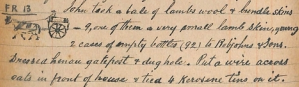 FR 13
John took a bale of lambs wool & bundle skins
– 9, one of them a very small lamb skin, young
2 cases of empty bottles (92) to Robjohns & Sons.
Dressed hinau gatepost & dug hole. Put a wire across
oats in front of house & tied 4 Kerosene tins on it.